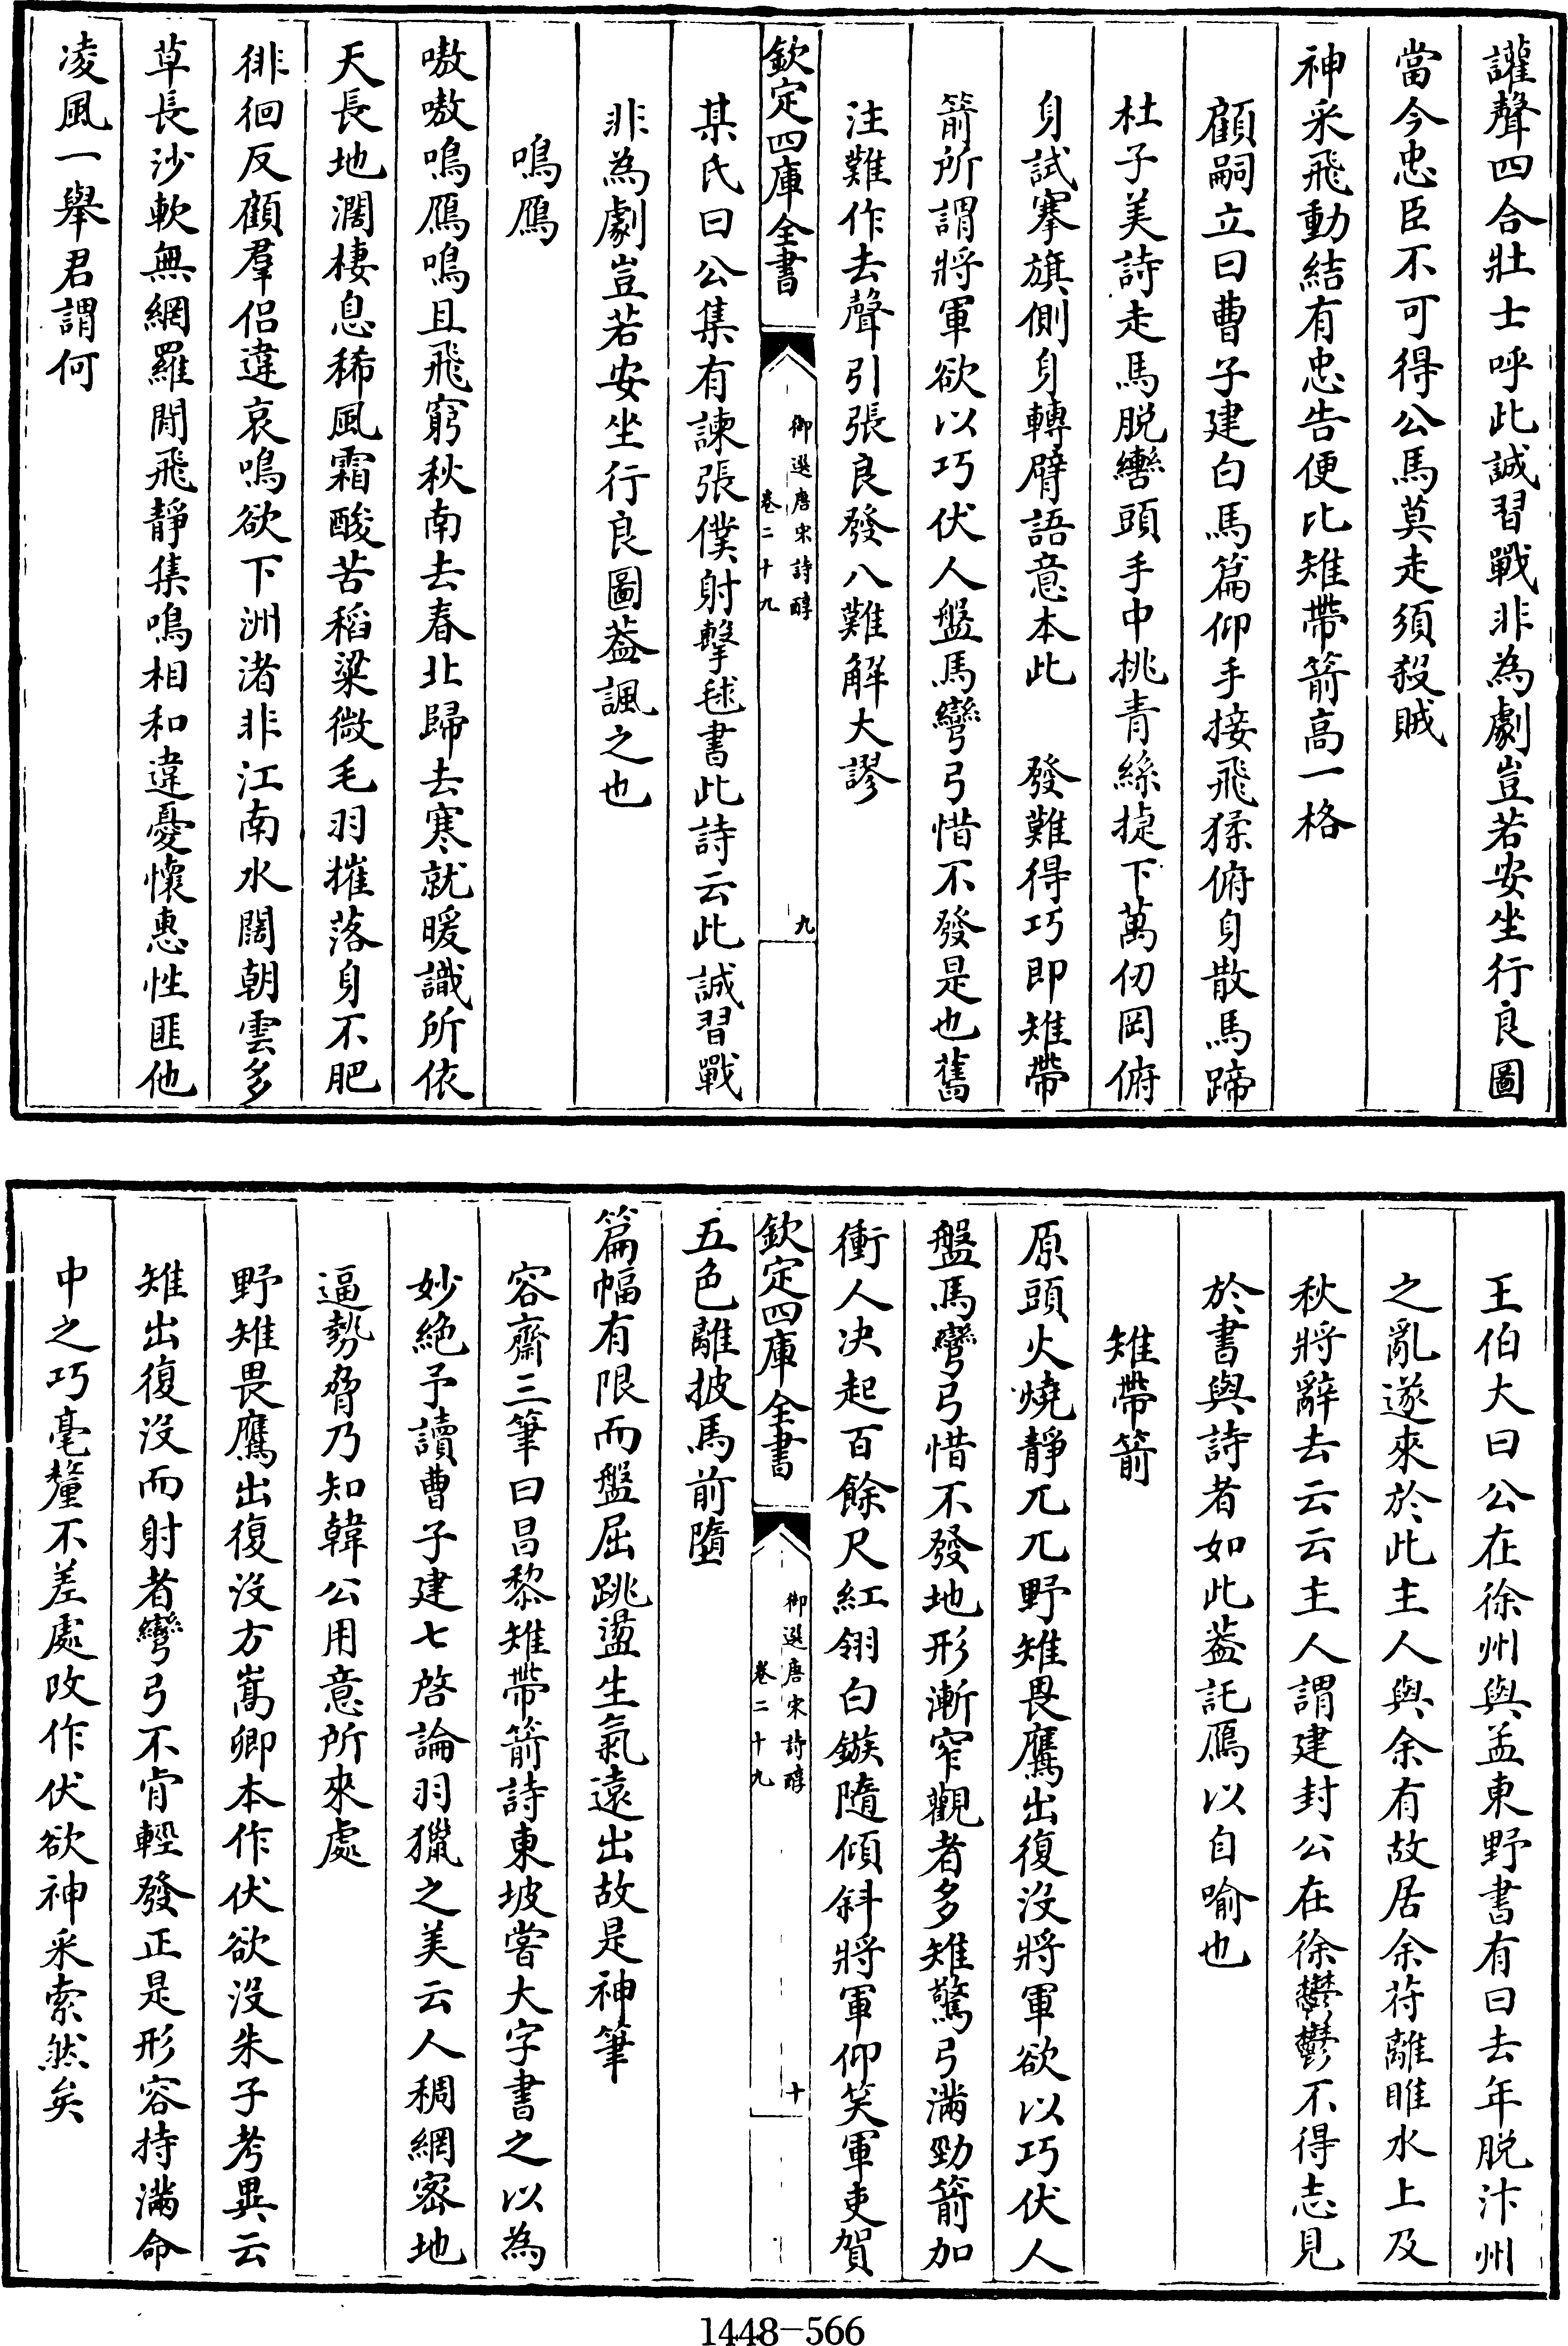 讙聲四合壯士呼此誠習戰非為劇豈若安坐行良圖
當今忠臣不可得公馬莫走須殺賊
神采飛動結有忠告便比雉帶箭高一格
顧嗣立曰曹子建白馬篇仰手接飛猱俯身散馬蹄
杜子美詩走馬脱轡頭手中挑青絲捷下萬仞岡俯
身試搴旗側身轉臂語意本此　發難得巧即雉帶
箭所謂將軍欲以巧伏人盤馬彎弓惜不發是也舊
注難作去聲引張良發八難解大謬
欽定四庫全書
御選唐宋詩醇
卷二十九
九
某氏曰公集有諫張僕射擊毬書此詩云此誠習戰
非為劇豈若安坐行良圖葢諷之也
鳴鴈
嗷嗷鳴鴈鳴且飛窮秋南去春北歸去寒就暖識所依
天長地濶棲息稀風霜酸苦稻粱微毛羽摧落身不肥
徘徊反顧羣侣違哀鳴欲下洲渚非江南水闊朝雲多
草長沙軟無網羅閒飛靜集鳴相和違憂懷惠性匪他
凌風一舉君謂何
王伯大曰公在徐州與孟東野書有曰去年脱汴州
之亂遂來於此主人與余有故居余苻離睢水上及
秋將辭去云云主人謂建封公在徐鬱鬱不得志見
於書與詩者如此葢託鴈以自喻也
雉帶箭
原頭火燒靜兀兀野雉畏鷹出復沒將軍欲以巧伏人
盤馬彎弓惜不發地形漸窄觀者多雉驚弓滿勁箭加
衝人决起百餘尺紅翎白鏃隨傾斜將軍仰笑軍吏賀
欽定四庫全書
御選唐宋詩醇
卷二十九
十
五色離披馬前墮
篇幅有限而盤屈跳盪生氣遠出故是神筆
容齋三筆曰昌黎雉帶箭詩東坡嘗大字書之以為
妙絶予讀曹子建七啓論羽獵之美云人稠網密地
逼勢脅乃知韓公用意所來處
野雉畏鷹出復沒方嵩卿本作伏欲沒朱子考異云
雉出復沒而射者彎弓不肯輕發正是形容持滿命
中之巧毫釐不差處改作伏欲神采索然矣
1448-566